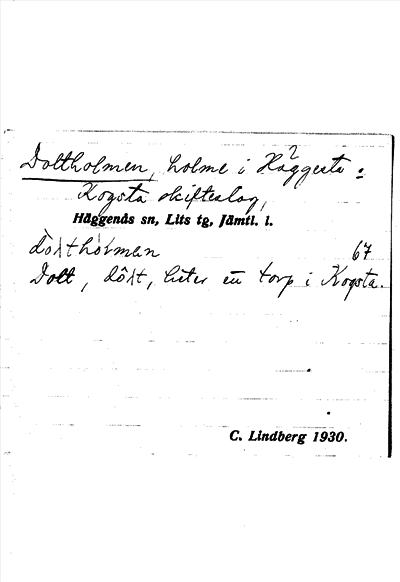 Doltholmen, holme i Häggesta o
Kogsta skifteslag,
Häggenås sn, Lits tg, Jämtl. l.
67
Dolt, heter en torp i Kogsta.
C. Lindberg 1930.